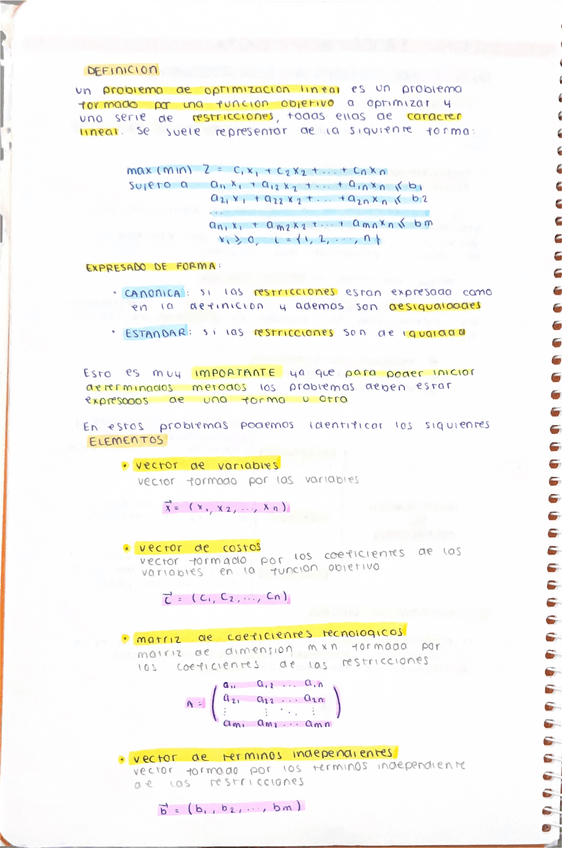 DEFINICION
un problema de optimizacion lineal es un problema
formado por una funcion objetivo a optimizar y
una serie de restricciones, todas ellas de caracter
lineal. Se suele representar de la siguiente forma:
max (min) Z = C₁x₁ + C₂x₂ + ... + Cnxn
Sujeto a a₁₁x₁ + a₁₂x₂ + ... + a₁nxn ≤ b₁
a₂₁x₁ + a₂₂x₂ + ... + a₂nxn ≤ b₂
...
am₁x₁ + am₂x₂ + ... + amnxn ≤ bm
xi ≥ 0, i = {1, 2, ..., n}
EXPRESADO DE FORMA:
· CANONICA: si las restricciones estan expresada como
en la definicion y ademas son desigualdades
· ESTANDAR: si las restricciones son de igualdad
Esto es muy IMPORTANTE ya que para poder iniciar
determinados metodos los problemas deben estar
expresados de una forma u otra
En estos problemas podemos identificar los siguientes
ELEMENTOS
• vector de variables
vector formado por las variables
x⃗ = (x₁, x₂, ..., xn)
• vector de costos
vector formado por los coeficientes de las
variables en la funcion objetivo
c⃗ = (C₁, C₂, ..., Cn)
• matriz de coeficientes tecnologicos
matriz de dimension mxn formado por
los coeficientes de las restricciones
a₁₁ a₁₂ ... a₁n
A = ( a₂₁ a₂₂ ... a₂n )
⋮ ⋮ ⋱ ⋮
am₁ am₂ ... amn
• vector de terminos independientes
vector formado por los terminos independiente
de las restricciones
b⃗ = (b₁, b₂, ..., bm)